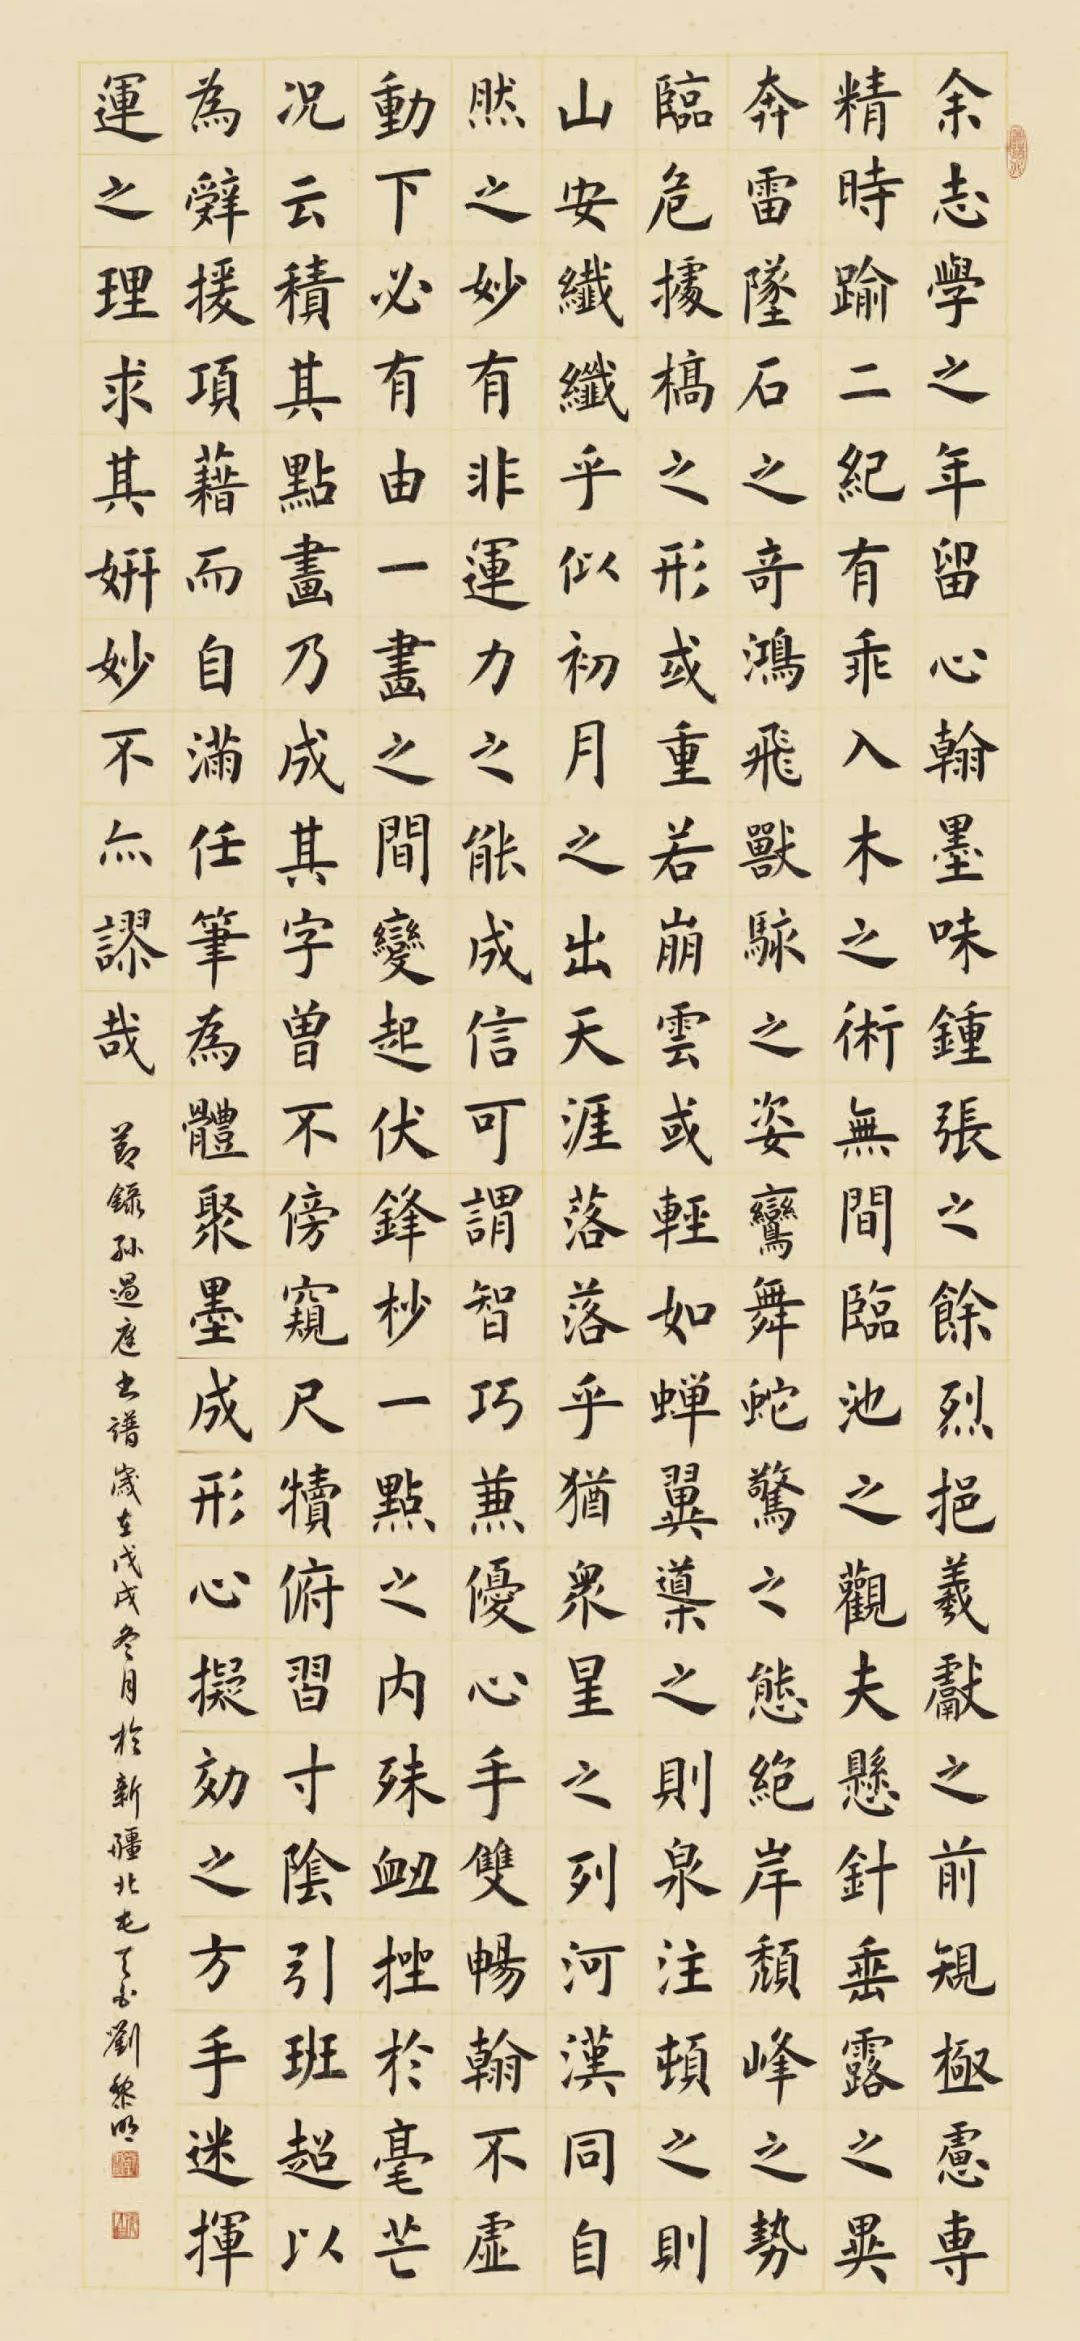 余志學之年留心翰墨味鍾張之餘烈挹羲獻之前規極慮專
精時踰二紀有乖入木之術無間臨池之觀夫懸針垂露之異
奔雷墜石之奇鴻飛獸駭之姿鸞舞蛇驚之態絕岸頹峰之勢
臨危據槁之形或重若崩雲或輕如蟬翼導之則泉注頓之則
山安纖纖乎似初月之出天涯落落乎猶眾星之列河漢同自
然之妙有非運力之能成信可謂智巧兼優心手雙暢翰不虛
動下必有由一畫之間變起伏鋒杪一點之內殊衄挫於毫芒
況云積其點畫乃成其字曾不傍窺尺犢俯習寸陰引班超以
為辭援項藉而自滿任筆為體聚墨成形心擬効之方手迷揮
運之理求其妍妙不亦謬哉
節錄孫過庭書譜歲在戊戌冬月於新疆北屯天山劉黎明